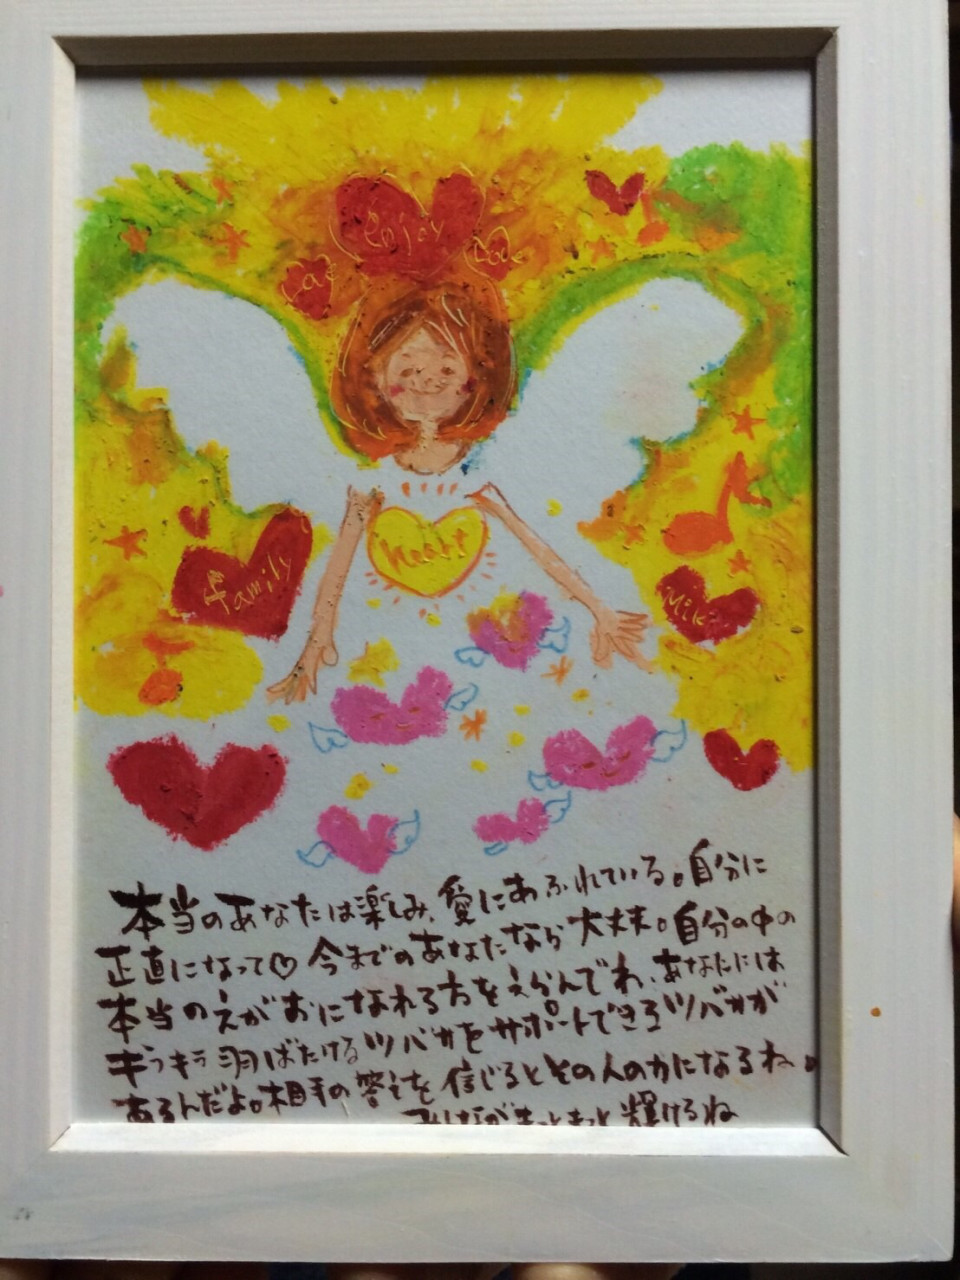 enjoy
Love
Love
heart
family
Milk
本当のあなたは楽しみ、愛にあふれている。自分に
正直になって♡今までのあなたなら大丈夫。自分の中の
本当のえがおになれる方をえらんでね、あなたには
キラキラ羽ばたけるツバサをサポートできるツバサが
あるんだよ。相手の答えを信じるとその人の力になるね。
みんながもっともっと輝けるね